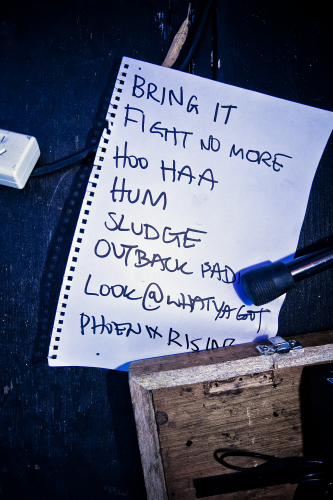 BRING IT
FIGHT NO MORE
HOO HAA
HUM
SLUDGE
OUTBACK BAD
LOOK@WHATYAGOT
PHOENIX RISING